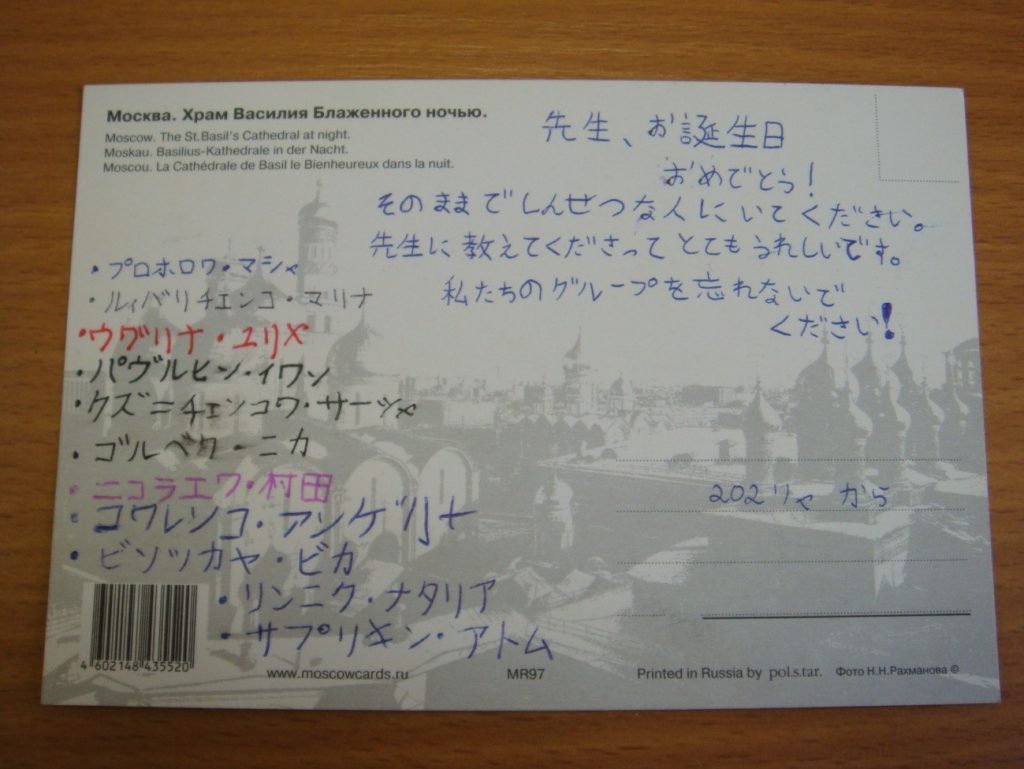 Москва. Храм Василия Блаженного ночью.
Moscow. The St.Basil's Cathedral at night.
Moskau. Basilius-Kathedrale in der Nacht.
Moscou. La Cathédrale de Basil le Bienheureux dans la nuit.
先生、お誕生日
おめでとう!
そのままでしんせつな人にいてください。
先生に教えてくださってとてもうれしいです。
私たちのグループを忘れないで
ください!
・プロホロワ・マシャ
・ルィバリチェンコ・マリナ
・ウグリナ・ユリヤ
・パヴルヒン・イワン
・クズニチェンコワ・サーシャ
・ゴルベワ・ニカ
・ニコラエワ・村田
・コワレンコ・アンゲリナ
・ビソツカヤ・ビカ
・リンニク・ナタリア
・サプリキン・アトム
202リャ から
4 602148 435520
www.moscowcards.ru
MR97
Printed in Russia by pol.s.tar. Фото Н.Н.Рахманова ©